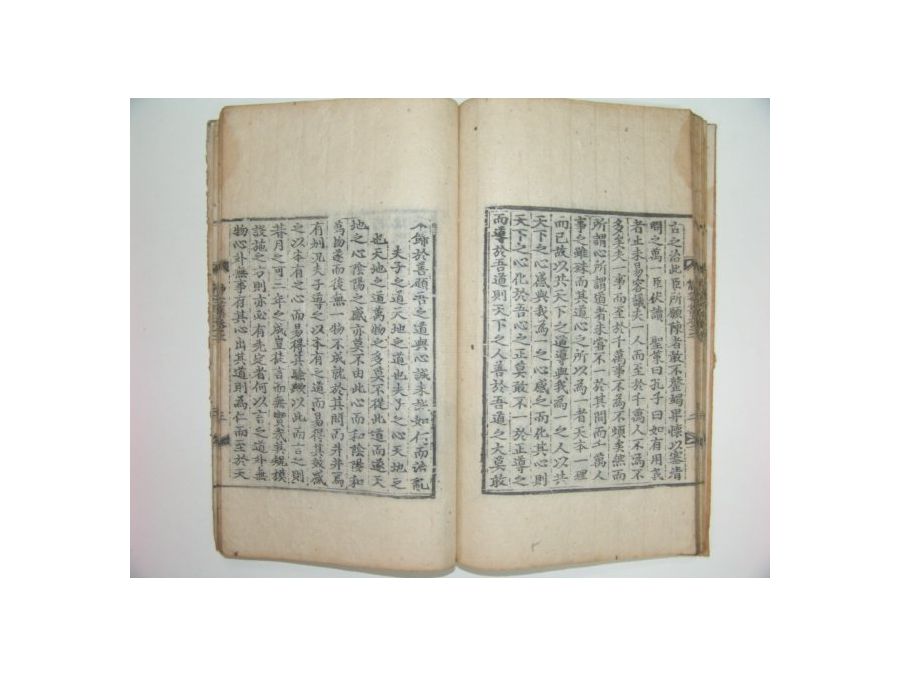 古之治此臣所願陳者敢不罄竭卑懷以塞清
問之萬一臣伏讀 聖策曰孔子曰如有用我
者止未易容議夫一人而至於千萬人不爲不
多矣夫一事而至於千萬事不爲不煩矣然而
所謂心所謂道者未嘗不一於其間而千萬人
事之雖殊而其道心之所以爲一者天本一理
而已故以共天下之道導與我爲一之人以共
天下之心感與我爲一之心感之而化其心則
天下之心化於吾心之正莫敢不一於正道之
而導於吾道則天下之人善於吾道之大莫敢
不歸於善顧吾之道與心誠未誠如何而治亂
夫子之道天地之道也夫子之心天地之
心也天地之道萬物之多莫不從此道而遂天
地之心陰陽之感亦莫不由此心而和陰陽和
萬物遂而後無一物不成就於其間而井井焉
有別況夫子導之以本有之道而易得其效感
之以本有之心而易得其驗歟以此而言之則
朞月之可三年之成豈徒言而無實哉其規模
設施之方則亦必有先定者何以言之道外無
物心外無事存其心出其道則爲仁而至於天